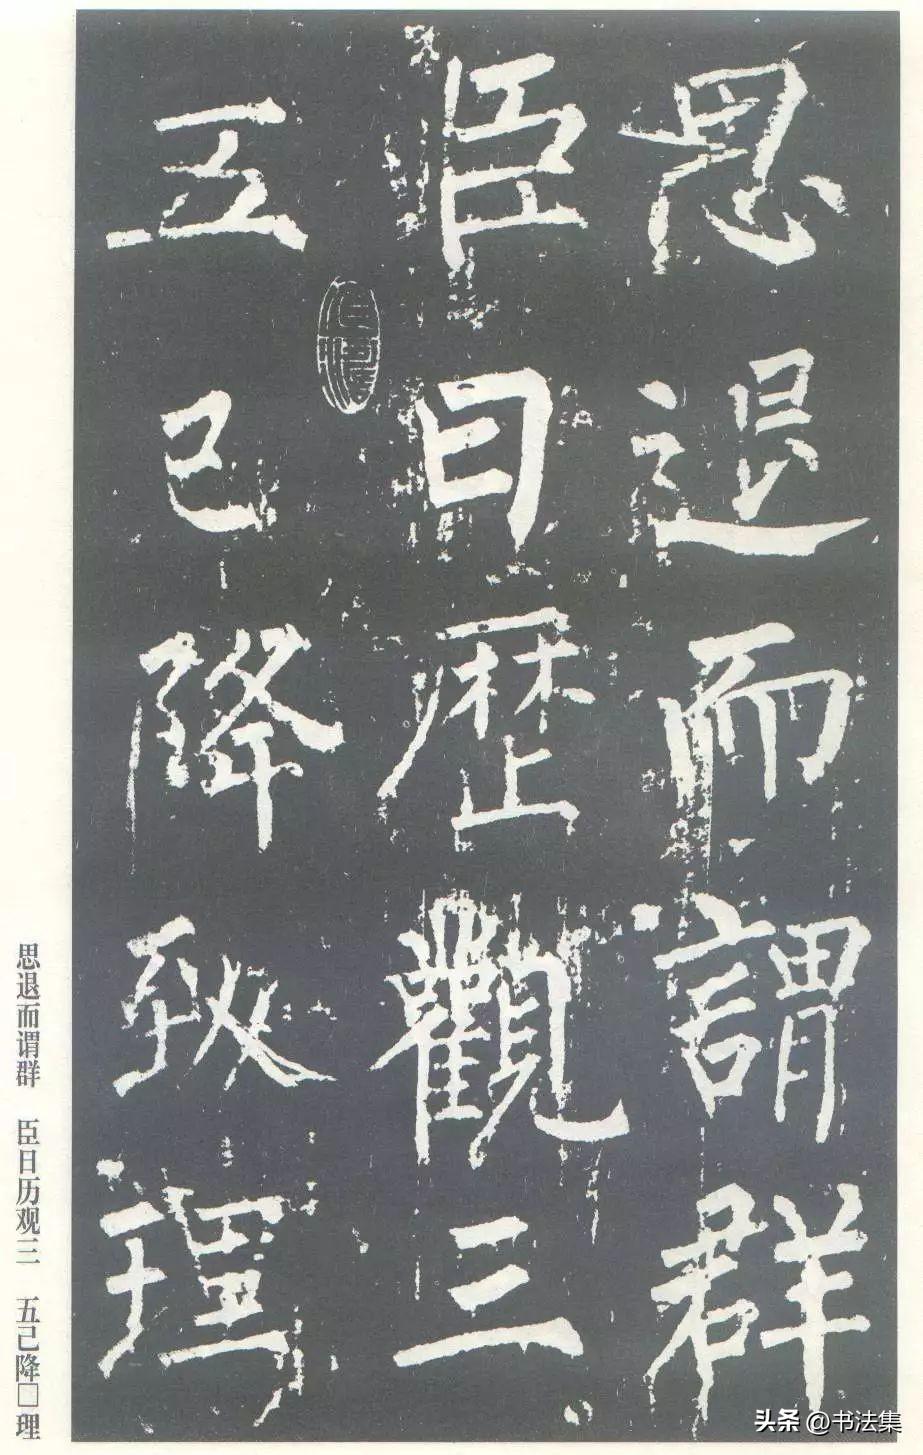 思退而謂群
臣曰歴觀三
五已降致理
思退而谓群　臣日历观三　五己降□理
头条 @书法集